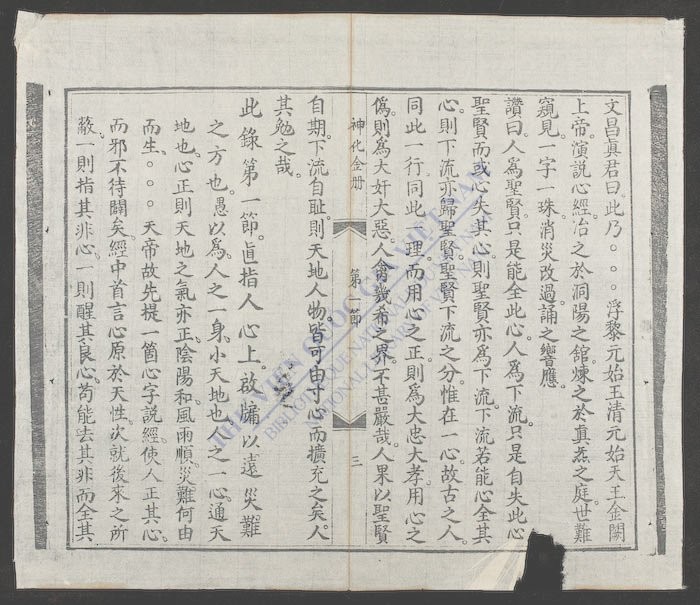 文昌眞君曰。此乃。。。浮黎元始王清元始天王金闕
上帝。演説心經。冶之於洞陽之舘。煉之於眞炁之庭。世難
窺見。一字一珠。消災改過。誦之響應。
讚曰。人為聖賢。只是能全此心。人為下流。只是自失此心
聖賢而或心失其心。則聖賢亦為下流。下流若能心全其
心。則下流亦歸聖賢。聖賢下流之分。惟在一心。故古之人。
同此一行。同此一理。而用心之正。則為大忠大孝。用心之
僞。則為大奸大惡。人禽幾希之界。不甚嚴哉。人果以聖賢
神化金册 第一節 三
自期。下流自耻。則天地人物。皆可由寸心而擴充之矣。人
其勉之哉。
此錄第一節。眞指人心上。啟牖以遠災難
之方也。愚以為。人之一身。小天地也。人之一心。通天
地也。心正則天地之氣亦正。陰陽和。風雨順。災難何由
而生。。。。天帝故先提一箇心字説經。使人正其心。
而邪不待闢矣。經中首言心原於天性。次就後來之所
蔽。一則指其非心。一則醒其良心。苟能去其非而全其
THƯ VIỆN QUỐC GIA VIỆT NAM
BIBLIOTHEQUE NATIONALE DU VIETNAM
NATIONAL LIBRARY OF VIETNAM